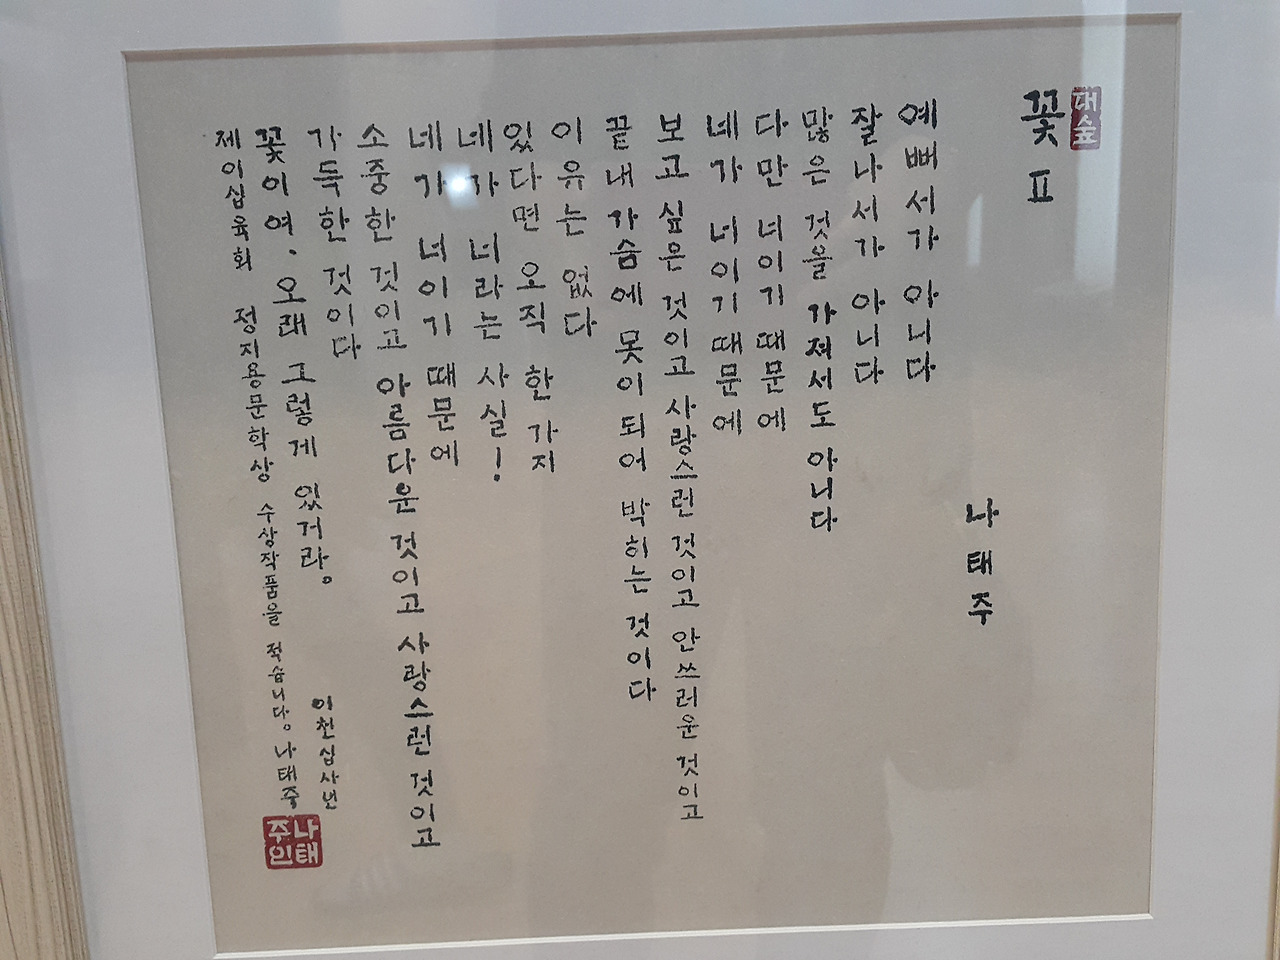 대숲
꽃 Ⅱ
나태주
예뻐서가 아니다
잘나서가 아니다
많은 것을 가져서도 아니다
다만 너이기 때문에
네가 너이기 때문에
보고 싶은 것이고 사랑스런 것이고 안쓰러운 것이고
끝내 가슴에 못이 되어 박히는 것이다
이유는 없다
있다면 오직 한 가지
네가 너라는 사실!
네가 너이기 때문에
소중한 것이고 아름다운 것이고 사랑스런 것이고
가득한 것이다
꽃이여. 오래 그렇게 있거라。
이천십사년
제이십육회 정지용문학상 수상작품을 적습니다。 나태주
나태
주인